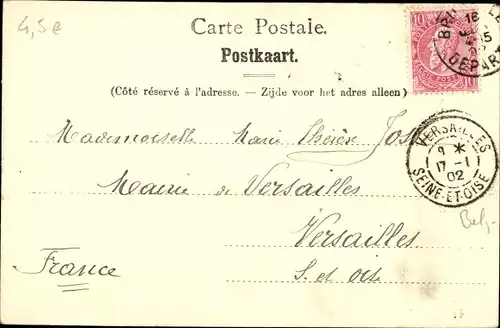 4,5€
Carte Postale.
Postkaart.
(Côté réservé à l'adresse. – Zijde voor het adres alleen)
10 10
BRU
16
5
DEPART
Mademoiselle Marie Thérèse
VERSAILLES
9 *
17 -1
02
SEINE-ET-OISE
Mairie de Versailles
Versailles
Belg
France
S. et Oise